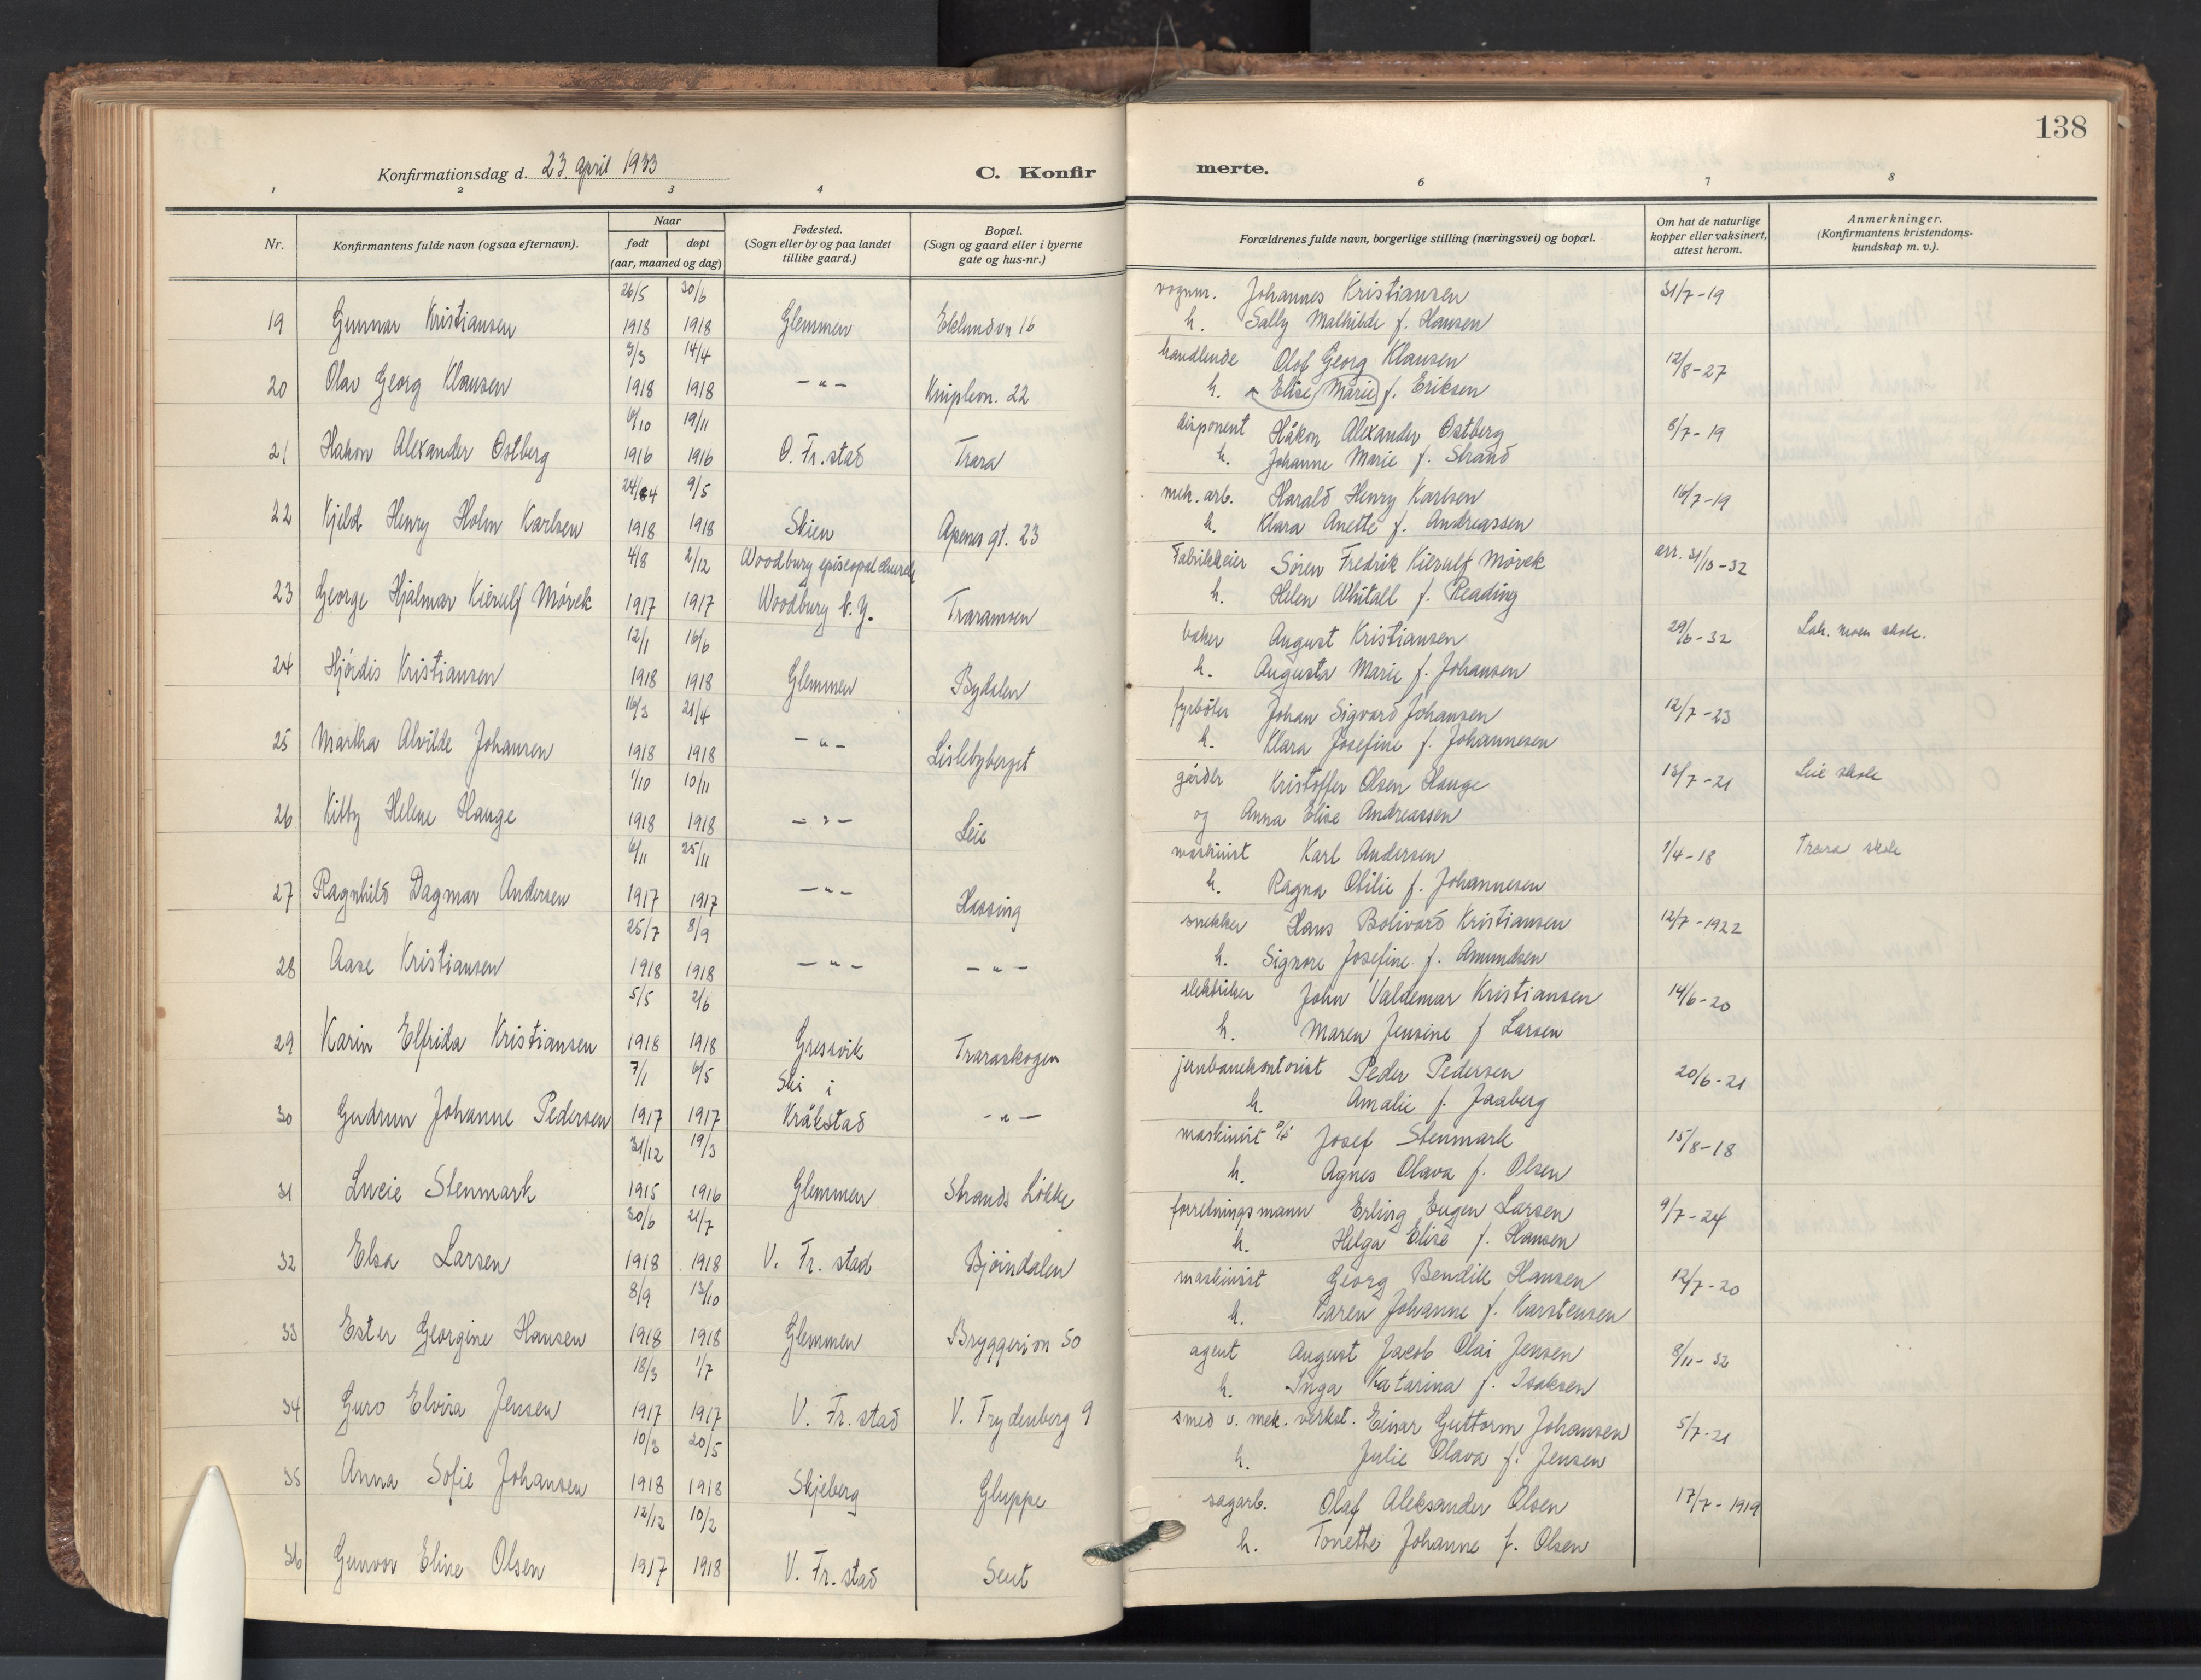 138
Konfirmationsdag d. 23. april 1933
C. Konfirmerte.
1 2 3 4 6 7 8
Nr.
Konfirmantens fulde navn (ogsaa efternavn).
Naar
født døpt
(aar, maaned og dag)
Fødested.
(Sogn eller by og paa landet
tillike gaard.)
Bopæl.
(Sogn og gaard eller i byerne
gate og hus-nr.)
Forældrenes fulde navn, borgerlige stilling (næringsvei) og bopæl.
Om hat de naturlige
kopper eller vaksinert,
attest herom.
Anmerkninger.
(Konfirmantens kristendoms-
kundskap m. v.).
26/5 30/6 vognm. Johannes Kristiansen 31/7-19
19 Gunnar Kristiansen 1918 1918 Glemmen Eklundvn 16 h. Sally Mathilde f. Hansen
3/3 14/4 handlende Olof Georg Klausen 12/8-27
20 Olav Georg Klausen 1918 1918 -"- Knipleon. 22 h. Elise Marie f. Eriksen
6/10 19/11 disponent Håkon Alexander Østberg 8/7-19
21 Hakon Alexander Østberg 1916 1916 O. Fr.stad Trara h. Johanne Marie f. Strand
24/4 9/5 mek. arb. Harald Henry Karlsen 16/7-19
22 Kjeld Henry Holm Karlsen 1918 1918 Skien Apenes gt. 23 h. Klara Anette f. Andreassen
4/8 2/12 Woodbury episcopal church Fabrikkeier Sören Fredrik Kierulf Mörck arr. 31/10-32
23 George Hjalmar Kierulf Mörck 1917 1917 Woodbury N.Y. Traramoen h. Helen Whitall f. Reading
12/1 16/6 baker August Kristiansen 29/6-32 Lah. moen skole.
24 Hjördis Kristiansen 1918 1918 Glemmen Bydalen h. Augusta Marie f. Johansen
16/3 21/4 fyrböter Johan Sigvard Johansen 12/7-23
25 Martha Alvilde Johansen 1918 1918 -"- Lislebyberget h. Klara Josefine f. Johannesen
1/10 10/11 gårdbr Kristoffer Olsen Hauge 13/7-21 Leie skole
26 Kitty Helene Hauge 1918 1918 -"- Leie og Anna Elise Andreassen
6/11 25/11 maskinist Karl Andersen 1/4-18 Trara skole
27 Ragnhild Dagmar Andersen 1917 1917 -"- Hassing h. Ragna Otilie f. Johannesen
25/7 8/9 snekker Hans Bolivard Kristiansen 12/7-1922
28 Aase Kristiansen 1918 1918 -"- -"- h. Signore Josefine f. Amundsen
5/5 2/6 elektriker John Valdemar Kristiansen 14/6-20
29 Karin Elfrida Kristiansen 1918 1918 Gressvik Traraskogen h. Maren Jensine f Larsen
7/1 6/5 Ski i jernbanekontorist Peder Pedersen 20/6-21
30 Gudrun Johanne Pedersen 1917 1917 Kråkstad -"- h. Amalie f. Jaaberg
31/12 19/3 maskinist D/S Josef Stenmark 15/8-18
31 Lucie Stenmark 1915 1916 Glemmen Strands Lökke h. Agnes Olava f. Olsen
30/6 21/7 forretningsmann Erling Eugen Larsen 9/7-24
32 Elsa Larsen 1918 1918 V. Fr. stad Bjørndalen h. Helga Elise f. Hansen
8/9 13/10 maskinist Georg Bendik Hansen 12/7-20
33 Ester Georgine Hansen 1918 1918 Glemmen Bryggerivn 50 h. Karen Johanne f. Karstensen
18/3 1/7 agent August Jacob Olai Jensen 8/11-32
34 Guro Elvira Jensen 1917 1917 V. Fr.stad V. Trydenberg 9 h. Inga Katarina f. Isaksen
10/3 20/5 smed v. mek. verkst. Einar Guttorm Johansen 5/7-21
35 Anna Sofie Johansen 1918 1918 Skjeberg Gluppe h. Julie Olava f. Jensen
12/12 10/2 sagarb. Olaf Aleksander Olsen 17/7-1919
36 Gunvor Eline Olsen 1917 1918 V. Fr.stad Seut h. Tonette Johanne f. Olsen